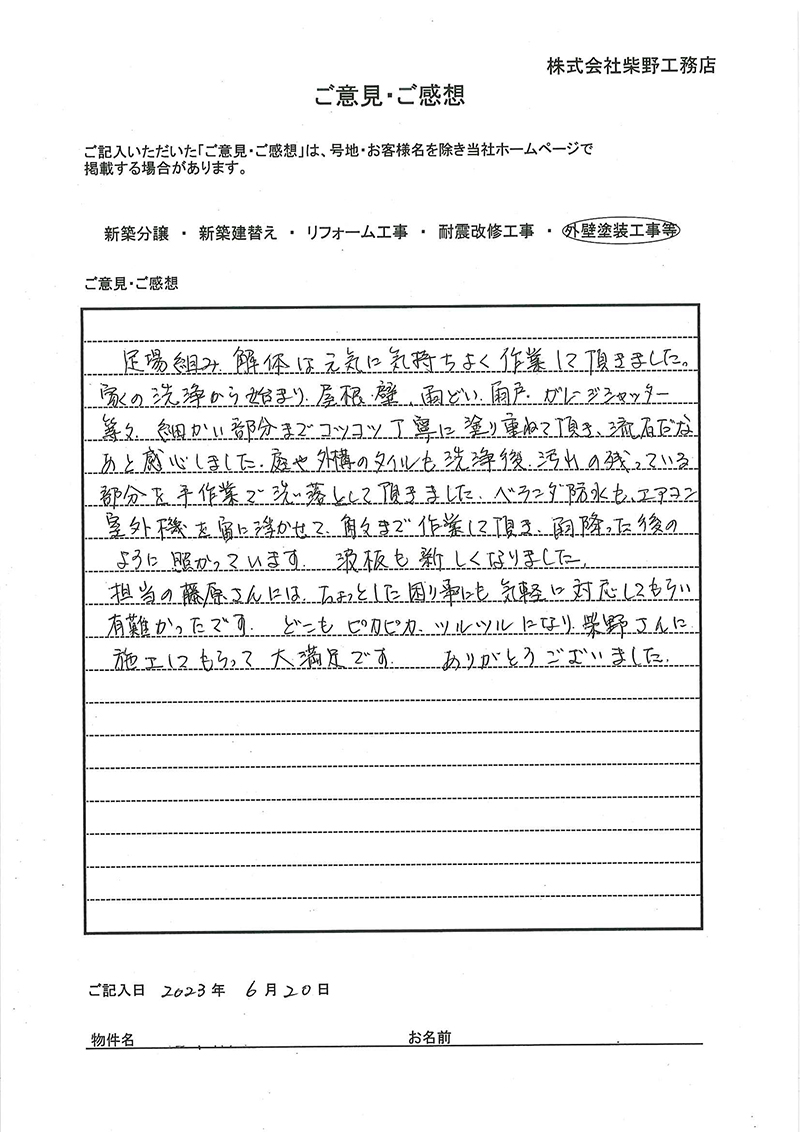 株式会社柴野工務店
ご意見・ご感想
ご記入いただいた「ご意見・ご感想」は、号地・お客様名を除き当社ホームページで
掲載する場合があります。
新築分譲 ・ 新築建替え ・ リフォーム工事 ・ 耐震改修工事 ・ 外壁塗装工事等
ご意見・ご感想
足場組み、解体は元気に気持ちよく作業して頂きました。
家の洗浄から始まり、屋根・壁、雨どい、雨戸、ガレージシャッター
等々、細かい部分までコツコツ丁寧に塗り重ねて頂き、流石だな
あと感心しました。庭や外構のタイルも洗浄後、汚れの残っている
部分を手作業で洗い落として頂きました。ベランダ防水も、エアコン
室外機を宙に浮かせて、角々まで作業して頂き、雨降った後の
ように照かっています。波板も新しくなりました。
担当の藤原さんには、ちょっとした困り事にも気軽に対応してもらい
有難かったです。どこもピカピカ、ツルツルになり、柴野さんに
施工してもらって大満足です。 ありがとうございました。
ご記入日 2023年 6月20日
物件名 お名前